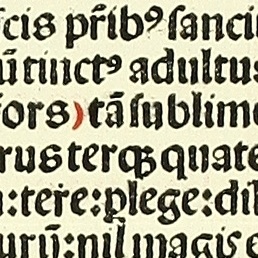 scis pr̄ibꝰ sanciu
ūtinctꝰ adultus
fors)tā sublime
rusterqꝫ quate
:ter̄e:ꝑlege:dil
urij:nil magis e